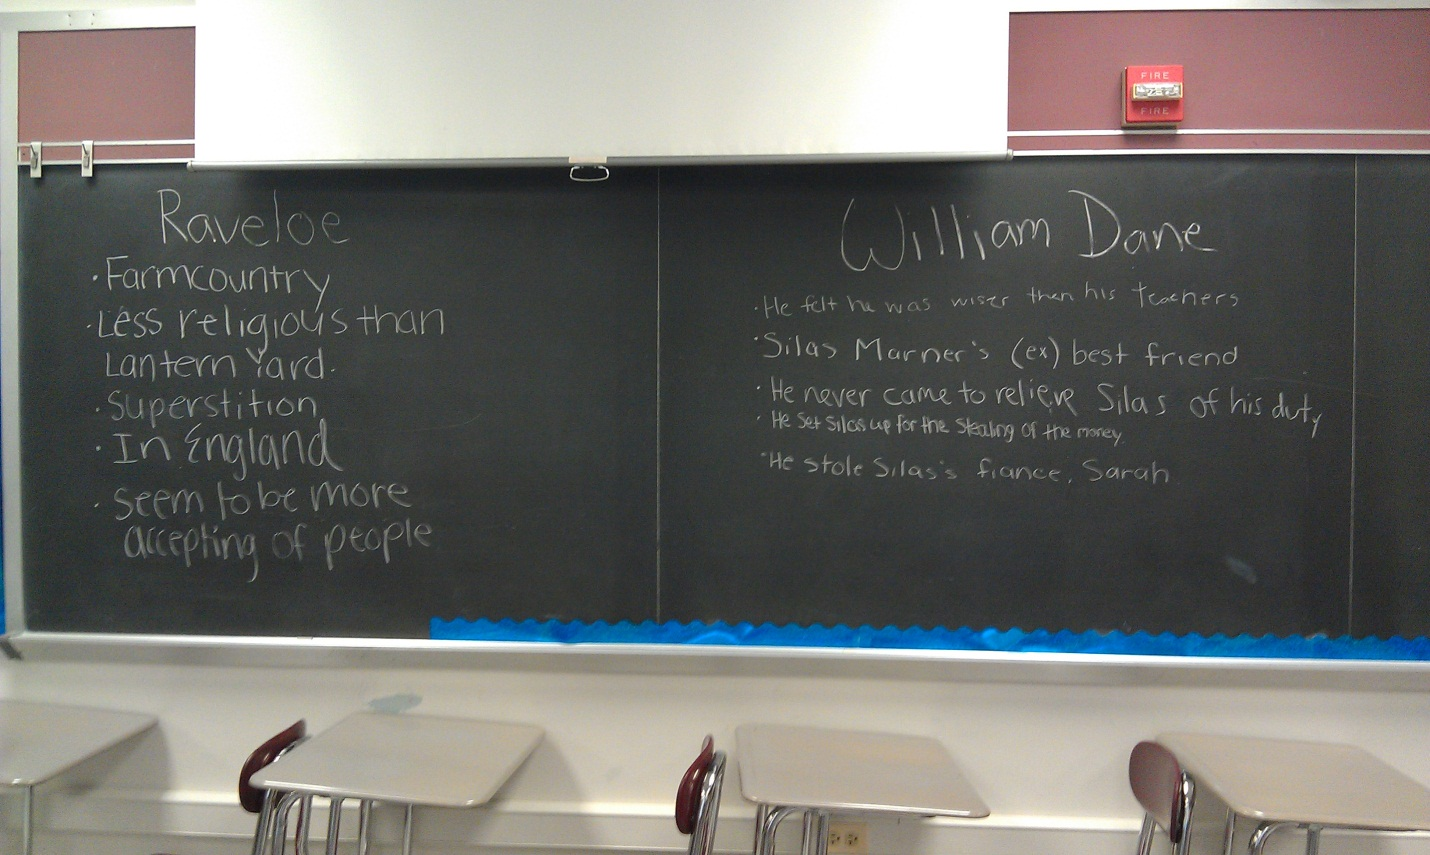 FIRE
FIRE
Raveloe
·Farmcountry
·Less religious than
Lantern Yard.
·Superstition
·In England
·Seem to be more
accepting of people
William Dane
·He felt he was wiser then his teachers
·Silas Marner's (ex) best friend
·He never came to relieve Silas of his duty
·He set Silas up for the stealing of the money.
·He stole Silas's fiance, Sarah